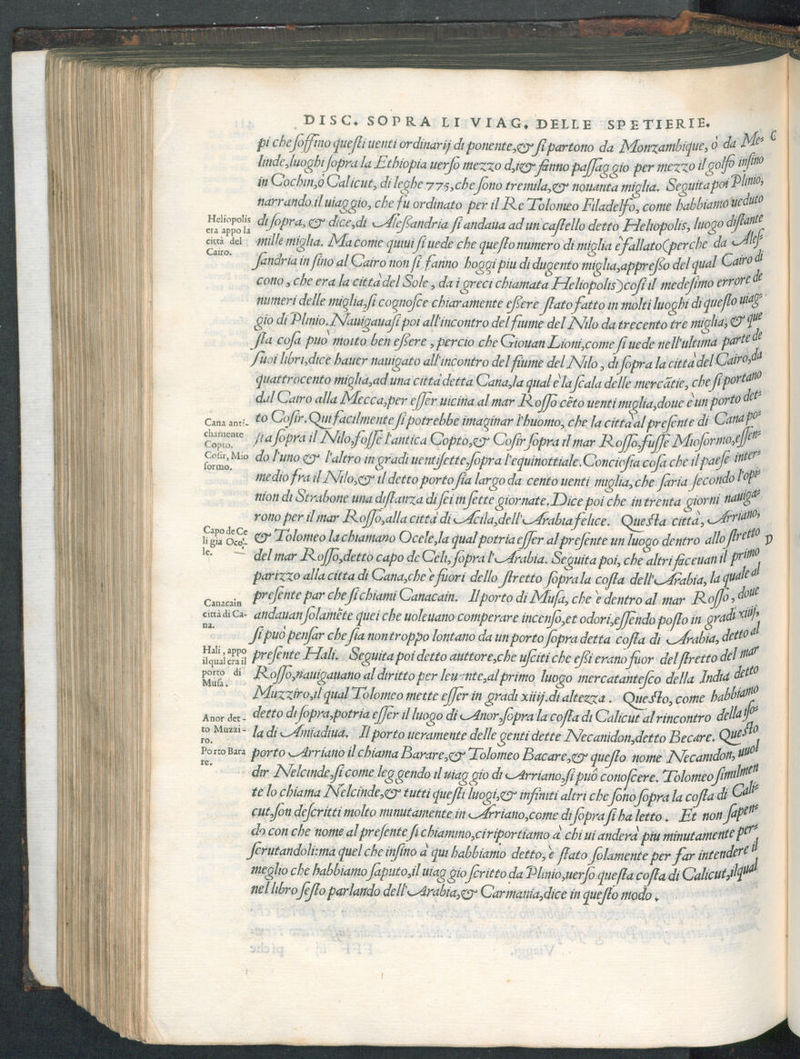 DISC. SOPRA LI VIAG. DELLE SPETIERIE.
pi che soffino questi uenti ordinarij di ponente,& si partono da Monzambique, ò da Me=
C
linde,luoghi sopra la Ethiopia uerso mezzo dì,& fanno passaggio per mezzo il golfo insino
in Cochin,ò Calicut, di leghe 775,che sono tremila,& nouanta miglia. Seguita poi Plinio,
narrando il uiaggio, che fu ordinato per il Re Tolomeo Filadelfo, come habbiamo ueduto
di sopra, & dice,di Alessandria si andaua ad un castello detto Heliopolis, luogo distante
mille miglia. Ma come quiui si uede che questo numero di miglia è fallato(perche da Ales
sandria in sino al Cairo non si fanno hoggi piu di dugento miglia,appresso del qual Cairo di
cono , che era la città del Sole , da i greci chiamata Heliopolis)cosi il medesimo errore de
numeri delle miglia,si cognosce chiaramente essere stato fatto in molti luoghi di questo uiag=
gio di Plinio. Nauigauasi poi all'incontro del fiume del Nilo da trecento tre miglia, & que
sta cosa può molto ben essere , percio che Giouan Lioni,come si uede nell'ultima parte de
suoi libri,dice hauer nauigato all'incontro del fiume del Nilo , di sopra la città del Cairo,da
quattrocento miglia,ad una città detta Cana,la qual è la scala delle mercātie, che si portano
dal Cairo alla Mecca,per esser uicina al mar Rosso cēto uenti miglia,doue è un porto det=
to Cosir. Qui facilmente si potrebbe imaginar l'huomo, che la città al presente di Cana po=
sta sopra il Nilo,fosse l'antica Copto,& Cosir sopra il mar Rosso,fusse Mioformo,essen=
do l'uno & l'altro in gradi uentisette,sopra l'equinottiale.Conciosia cosa che il paese inter=
medio fra il Nilo,& il detto porto sia largo da cento uenti miglia,che saria secondo l'opi=
nion di Strabone una distanza di sei in sette giornate.Dice poi che in trenta giorni nauiga=
rono per il mar Rosso,alla città di Acila,dell'Arabia felice. Questa città, Arriano,
& Tolomeo la chiamano Ocele,la qual potria esser al presente un luogo dentro allo stretto
D
del mar Rosso,detto capo de Celi,sopra l'Arabia. Seguita poi, che altri faceuan il primo
parizzo alla citta di Cana,che è fuori dello stretto sopra la costa dell'Arabia, la quale al
presente par che si chiami Canacain. Il porto di Musa, che è dentro al mar Rosso, doue
andauan solamēte quei che uoleuano comperare incenso,et odori,essendo posto in gradi xiiij,
si può pensar che sia non troppo lontano da un porto sopra detta costa di Arabia, detto al
presente Hali. Seguita poi detto auttore,che usciti che essi erano fuor del stretto del mar
Rosso,nauigauano al diritto per leuante,al primo luogo mercatantesco della India detto
Muzziro,il qual Tolomeo mette esser in gradi xiiij.di altezza . Questo, come habbiamo
detto di sopra,potria esser il luogo di Anor,sopra la costa di Calicut al rincontro della iso=
la di Amiadiua. Il porto ueramente delle genti dette Necanidon,detto Becare. Questo
porto Arriano il chiama Barare,& Tolomeo Bacare,& questo nome Necanidon, uuol
dir Nelcinde,si come leggendo il uiaggio di Arriano,si può conoscere. Tolomeo similmen
te lo chiama Nelcinde,& tutti questi luogi,& infiniti altri che sono sopra la costa di Cali=
cut,son descritti molto minutamente in Arriano,come di sopra si ha letto . Et non sapen=
do con che nome al presente si chiamino,ci riportiamo à chi ui anderà piu minutamente per=
scrutandoli:ma quel che insino à qui habbiamo detto, è stato solamente per far intendere il
meglio che habbiamo saputo,il uiaggio scritto da Plinio,uerso questa costa di Calicut,ilqual
nel libro sesto parlando dell'Arabia,& Carmania,dice in questo modo .
Heliopolis
era appo la
città del
Cairo.
Cana anti-
chamente
Copto.
Cosir, Mio
formo.
Capo de Ce
li gia Oce-
le.
Canacain
città di Ca-
na.
Hali , appo
il qual era il
porto di
Musa.
Anor det-
to Muzai-
ro.
Porto Bara
re.